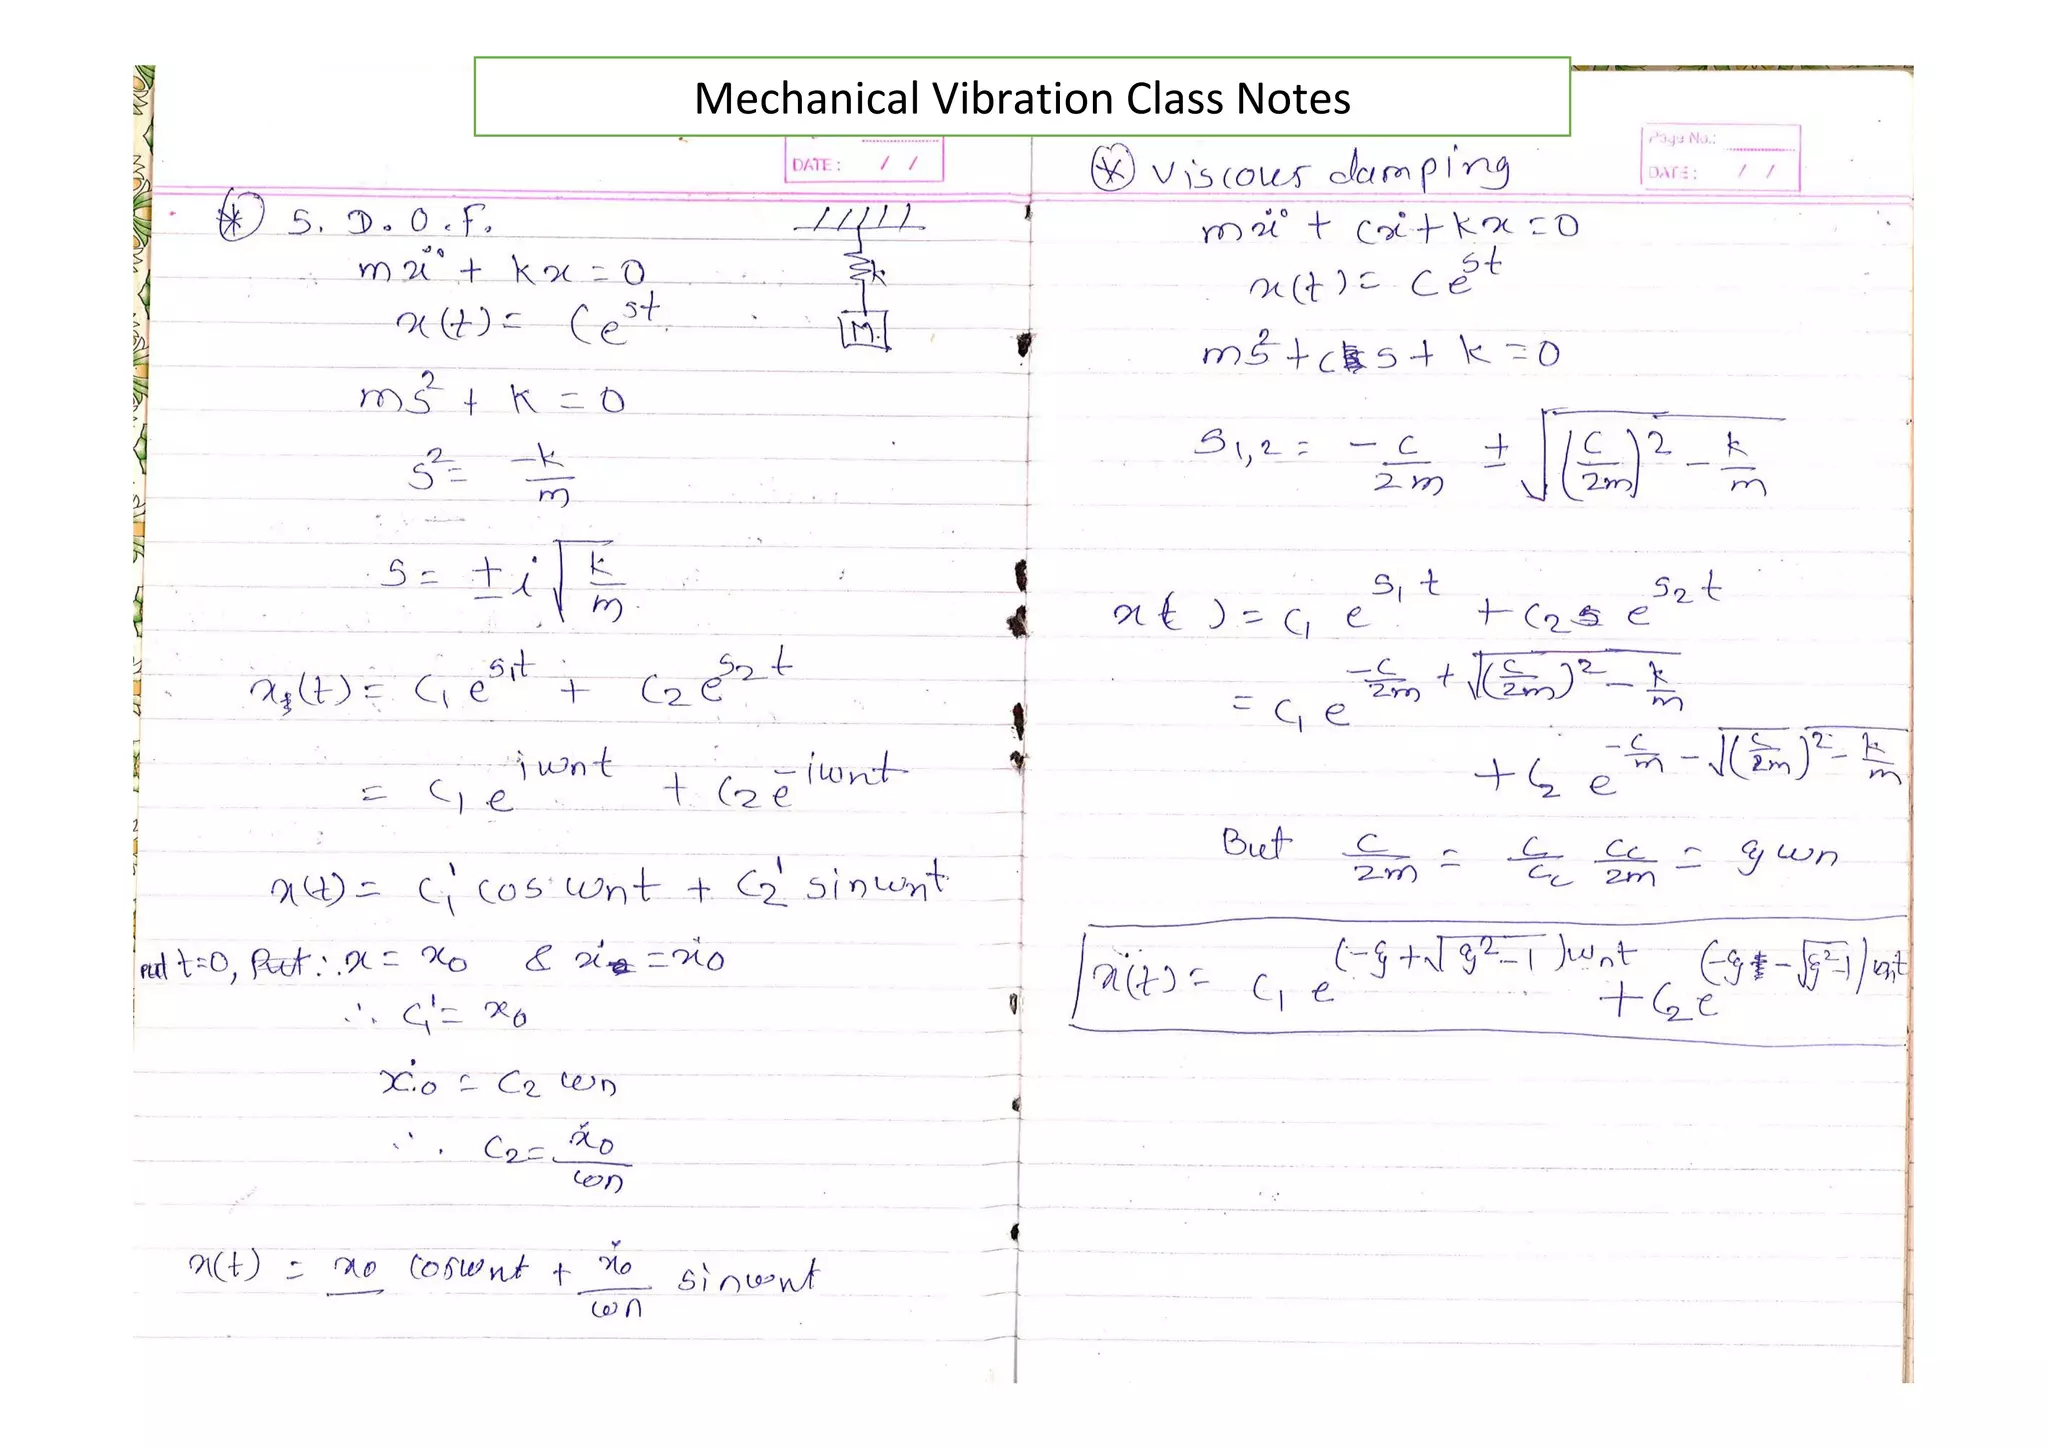 Mechanical Vibration Class Notes
DATE: / /
S. D. O. F.
mẍ + kx = 0
k
x(t) = Ce^st
M.
ms² + k = 0
s² = -k/m
s = ± i √(k/m)
x(t) = C₁ e^s₁t + C₂ e^s₂t
= C₁ e^iωnt + C₂ e^-iωnt
x(t) = C₁' cos ωnt + C₂' sin ωnt
put t=0, Put ∴ x = x₀ & ẋ = ẋ₀
∴ C₁' = x₀
ẋ₀ = C₂ ωn
∴ C₂ = ẋ₀/ωn
x(t) = x₀ cosωnt + ẋ₀/ωn sinωnt
Page No.:
DATE: / /
Viscous damping
mẍ + cẋ + kx = 0
x(t) = Ce^st
ms² + cs + k = 0
S₁,₂ = -c/2m ± √((c/2m)² - k/m)
x(t) = C₁ e^s₁t + C₂ e^s₂t
= C₁ e^(-c/2m + √((c/2m)² - k/m))
+ C₂ e^(-c/m - √((c/2m)² - k/m))
But c/2m = c/Cc Cc/2m = ξ ωn
x(t) = C₁ e^(-ξ + √(ξ²-1))ωnt + C₂ e^(-ξ - √(ξ²-1))ωnt